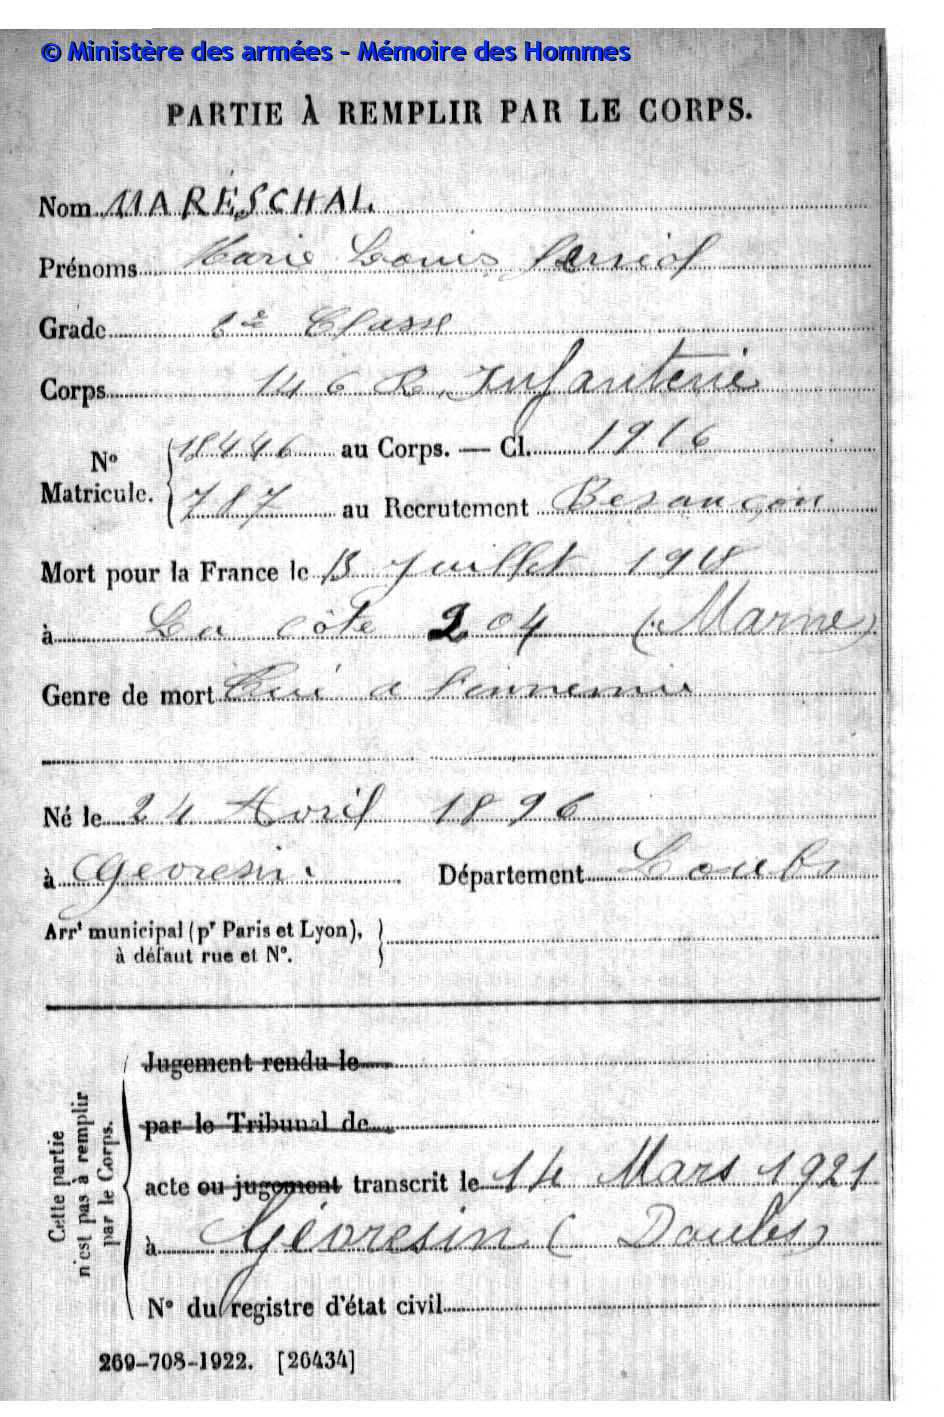 © Ministère des armées - Mémoire des Hommes
PARTIE À REMPLIR PAR LE CORPS.
Nom MARÉSCHAL
Prénoms Marie Louis
Grade 2e Classe
Corps 146 R. Infanterie
N° Matricule. 18446 au Corps. — Cl. 1916
787 au Recrutement Besançon
Mort pour la France le 13 Juillet 1918
à La côte 204 (Marne)
Genre de mort Tué a l'ennemi
Né le 24 Avril 1896
à Gevresin Département Doubs
Arrt municipal (pr Paris et Lyon),
à défaut rue et N°.
Cette partie
n'est pas à remplir
par le Corps.
Jugement rendu le
par le Tribunal de
acte ou jugement transcrit le 14 Mars 1921
à Gévresin (Doubs)
N° du registre d'état civil
269-708-1922. [26434]